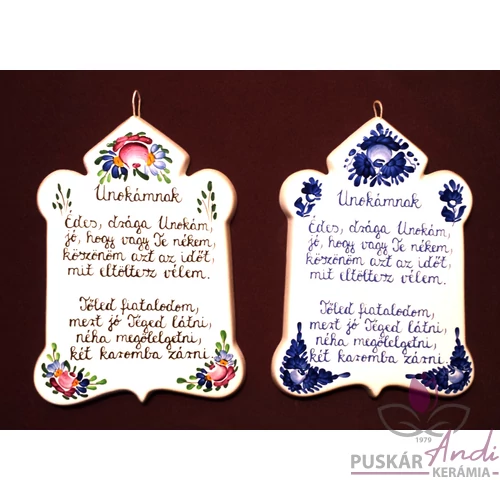 Unokámnak
Édes, drága Unokám,
jó, hogy vagy Te nékem,
köszönöm azt az időt,
mit eltöltesz vélem.
Tőled fiatalodom,
mert jó Téged látni,
néha megölelgetni,
két karomba zárni.
Unokámnak
Édes, drága Unokám,
jó, hogy vagy Te nékem,
köszönöm azt az időt,
mit eltöltesz vélem.
Tőled fiatalodom,
mert jó Téged látni,
néha megölelgetni,
két karomba zárni.
1979
PUSKÁR Andi
KERÁMIA